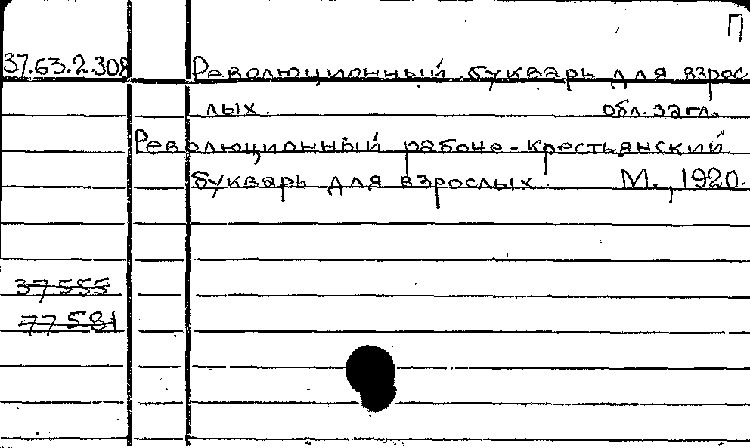 П
37.63.2.308 Революционный букварь для взрос
лых. обл. загл.
Революционный рабоче-крестьянский
букварь для взрослых. М., 1920.
37555
77581